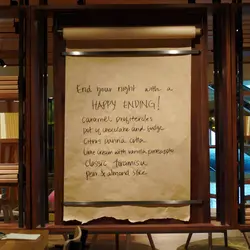 End your night with a
HAPPY ENDING!
caramel profiteroles
pot of chocolate and fudge
Citrus panna cotta
lime cream with vanilla pineapple
classic tiramisu
pear & almond slice